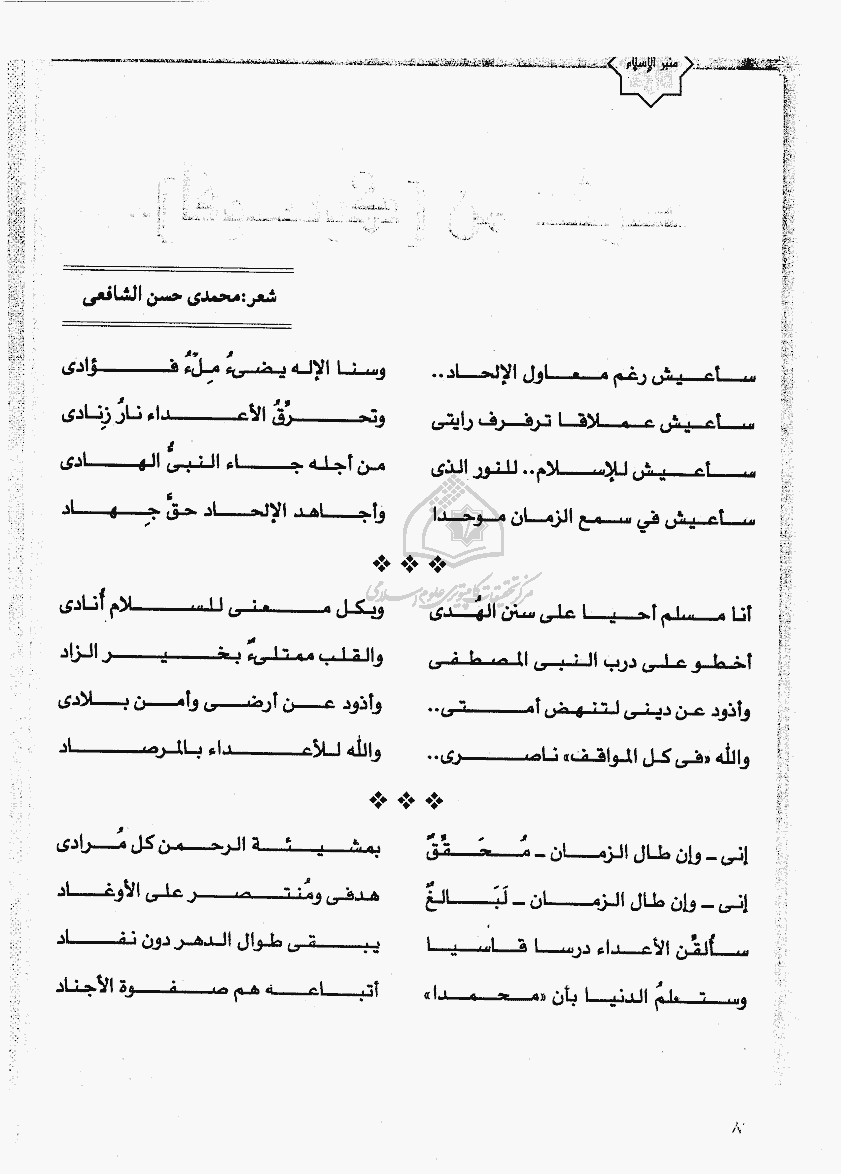 منبر الإسلام
شعر: محمدى حسن الشافعى
سأعيش رغم معاول الإلحاد.. وسنا الإله يضىءُ مِلْءُ فؤادى
سأعيش عملاقا ترفرف رايتى وتحرِّقُ الأعداء نارُ زِنادى
سأعيش للإسلام.. للنور الذى من أجله جاء النبىُّ الهادى
سأعيش في سمع الزمان موحدا وأجاهد الإلحاد حقَّ جِهاد
مركز تحقيقات كامپيوترى علوم اسلامى
أنا مسلم أحيا على سنن الهُدى وبكل معنى للسلام أُنادى
أخطو على درب النبى المصطفى والقلب ممتلىءٌ بخير الزاد
وأذود عن دينى لتنهض أمتى.. وأذود عن أرضى وأمن بلادى
والله «فى كل المواقف» ناصرى.. والله للأعداء بالمرصاد
إنى - وإن طال الزمان - مُحَققٌ بمشيئة الرحمن كل مُرادى
إنى - وإن طال الزمان - لَبَالغٌ هدفى ومُنتصر على الأوغاد
سأُلقِّن الأعداء درسا قاسيا يبقى طوال الدهر دون نفاد
وستعلمُ الدنيا بأن «محمدا» أتباعه هم صفوة الأجناد
٨